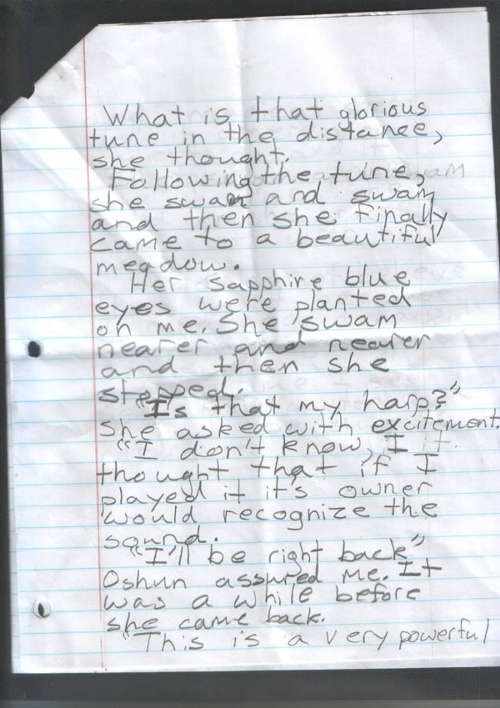 What is that glorious
tune in the distance,
she thought.
Following the tune,
she swam and swam
and then she finally
came to a beautiful
meadow.
Her sapphire blue
eyes were planted
on me. She swam
nearer and nearer
and then she
stopped.
"Is that my harp?"
she asked with excitement.
"I don't know, I
thought that if I
played it it's owner
would recognize the
sound.
"I'll be right back"
Oshun assured me. It
was a while before
she came back.
"This is a very powerful